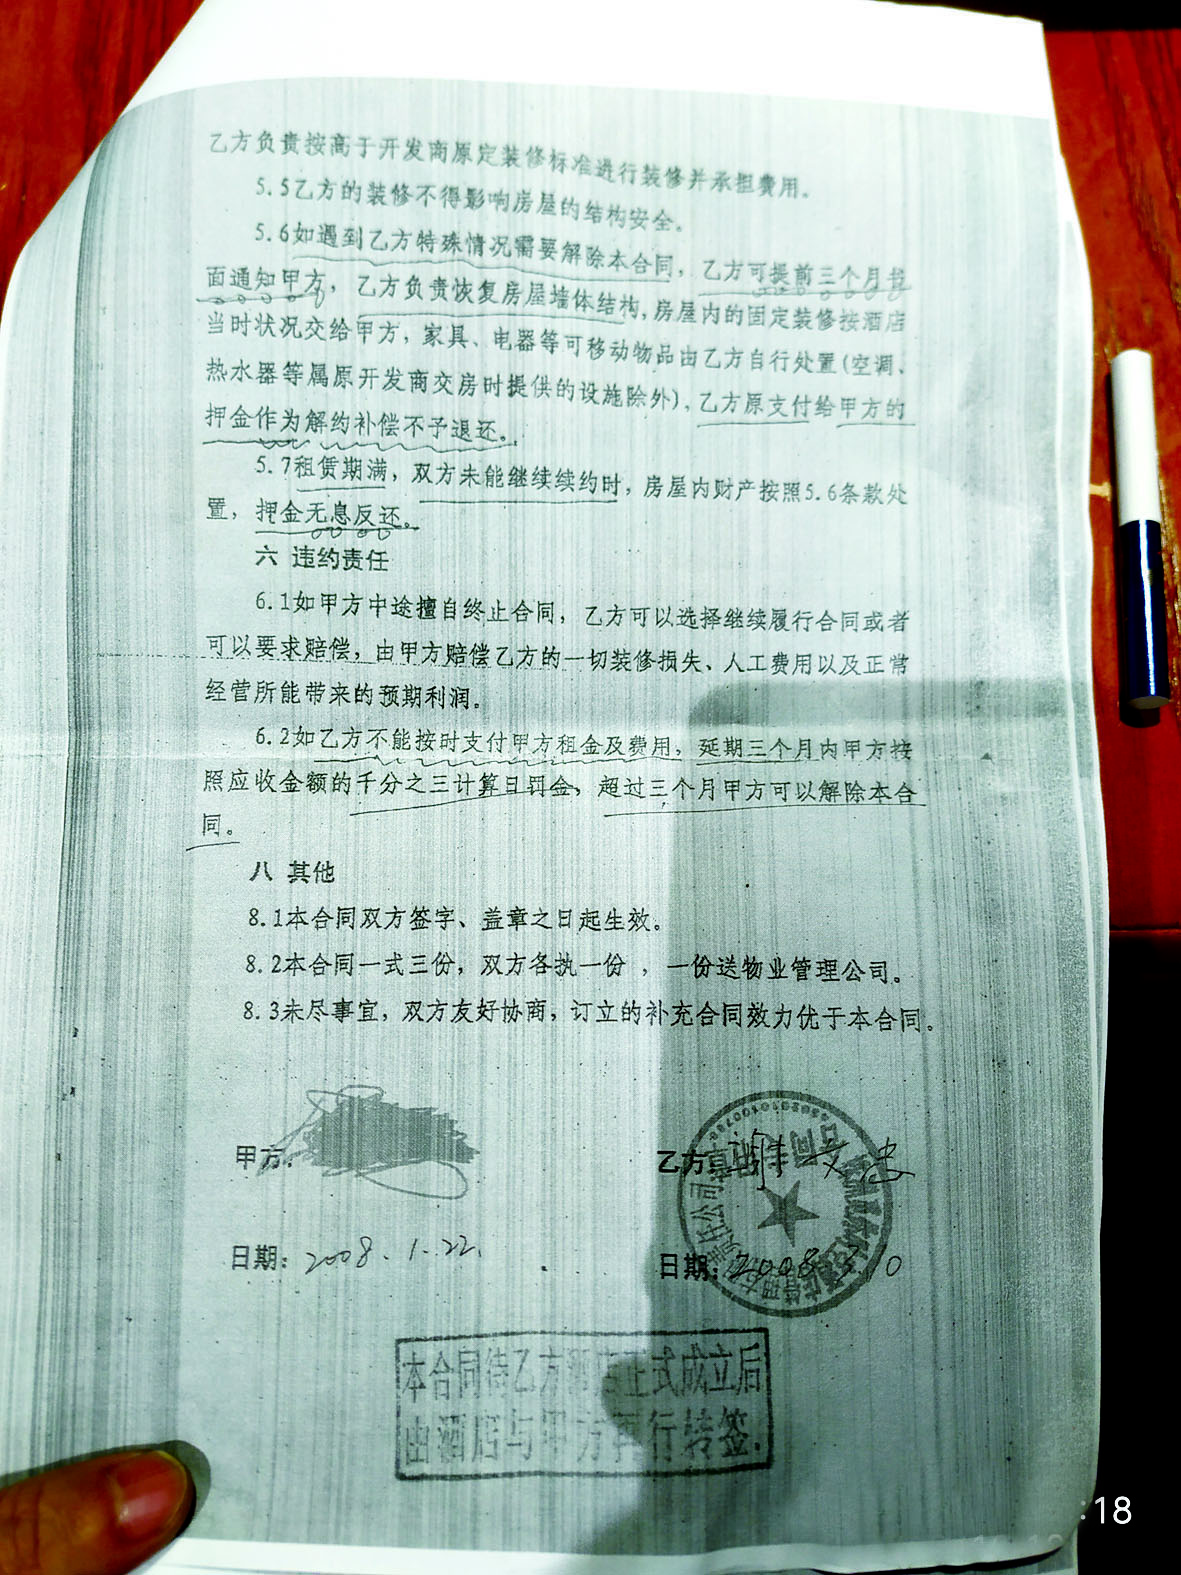 乙方负责按高于开发商原定装修标准进行装修并承担费用。
5.5乙方的装修不得影响房屋的结构安全。
5.6如遇到乙方特殊情况需要解除本合同，乙方可提前三个月书
面通知甲方，乙方负责恢复房屋墙体结构，房屋内的固定装修按酒店
当时状况交给甲方，家具、电器等可移动物品由乙方自行处置(空调、
热水器等属原开发商交房时提供的设施除外)，乙方原支付给甲方的
押金作为解约补偿不予退还。
5.7租赁期满，双方未能继续续约时，房屋内财产按照5.6条款处
置，押金无息反还。
六 违约责任
6.1如甲方中途擅自终止合同，乙方可以选择继续履行合同或者
可以要求赔偿，由甲方赔偿乙方的一切装修损失、人工费用以及正常
经营所能带来的预期利润。
6.2如乙方不能按时支付甲方租金及费用，延期三个月内甲方按
照应收金额的千分之三计算日罚金，超过三个月甲方可以解除本合
同。
八 其他
8.1本合同双方签字、盖章之日起生效。
8.2本合同一式三份，双方各执一份 ，一份送物业管理公司。
8.3未尽事宜，双方友好协商，订立的补充合同效力优于本合同。
甲方：
乙方：
日期：2008.1.22.
日期：2008.3.10
本合同待乙方酒店正式成立后
由酒店与甲方再行转签.
:18